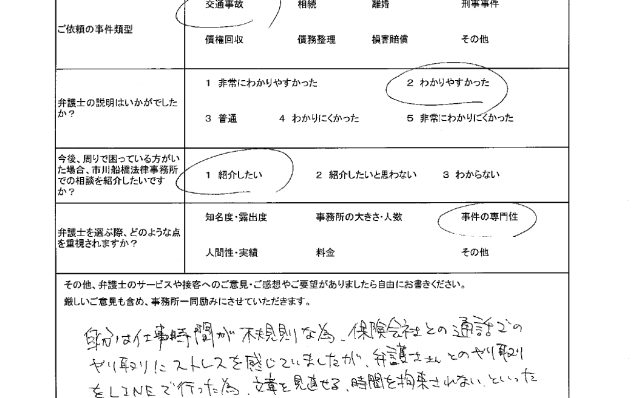 交通事故 相続 離婚 刑事事件
ご依頼の事件類型
債権回収 債務整理 損害賠償 その他
1 非常にわかりやすかった 2 わかりやすかった
弁護士の説明はいかがでした
か?
3 普通 4 わかりにくかった 5 非常にわかりにくかった
今後、周りで困っている方がい
た場合、市川船橋法律事務所
での相談を紹介したいです
か?
1 紹介したい 2 紹介したいと思わない 3 わからない
知名度・露出度 事務所の大きさ・人数 事件の専門性
弁護士を選ぶ際、どのような点
を重視されますか?
人間性・実績 料金 その他
その他、弁護士のサービスや接客へのご意見・ご感想やご要望がありましたら自由にお書きください。
厳しいご意見も含め、事務所一同励みにさせていただきます。
自分は仕事時間が不規則な為、保険会社との通話での
やり取りにストレスを感じていましたが、弁護士さんとのやり取り
をLINEで行った為、文章を見直せる、時間を拘束されない、といった